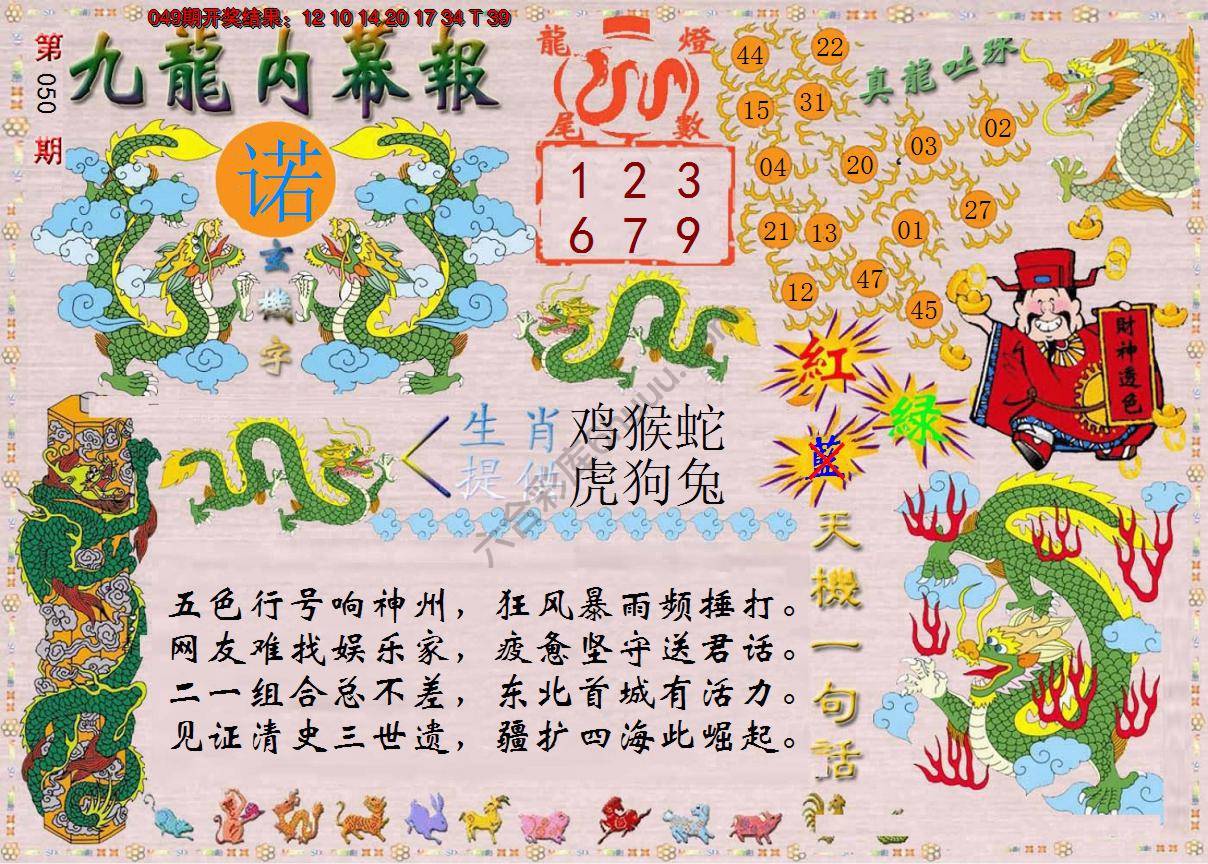 049期开奖结果：12 10 14 20 17 34 T 39
第050期
九龍内幕報
诺
玄機字
龍燈
尾數
1 2 3
6 7 9
真龍吐珠
44 22
15 31
04 20 03 02
21 13 01 27
12 47 45
財神透色
紅
綠
藍
生肖 鸡猴蛇
提供 虎狗兔
六合彩库
天機一句話
五色行号响神州，狂风暴雨频捶打。
网友难找娱乐家，疲惫坚守送君话。
二一组合总不差，东北首城有活力。
见证清史三世遗，疆扩四海此崛起。